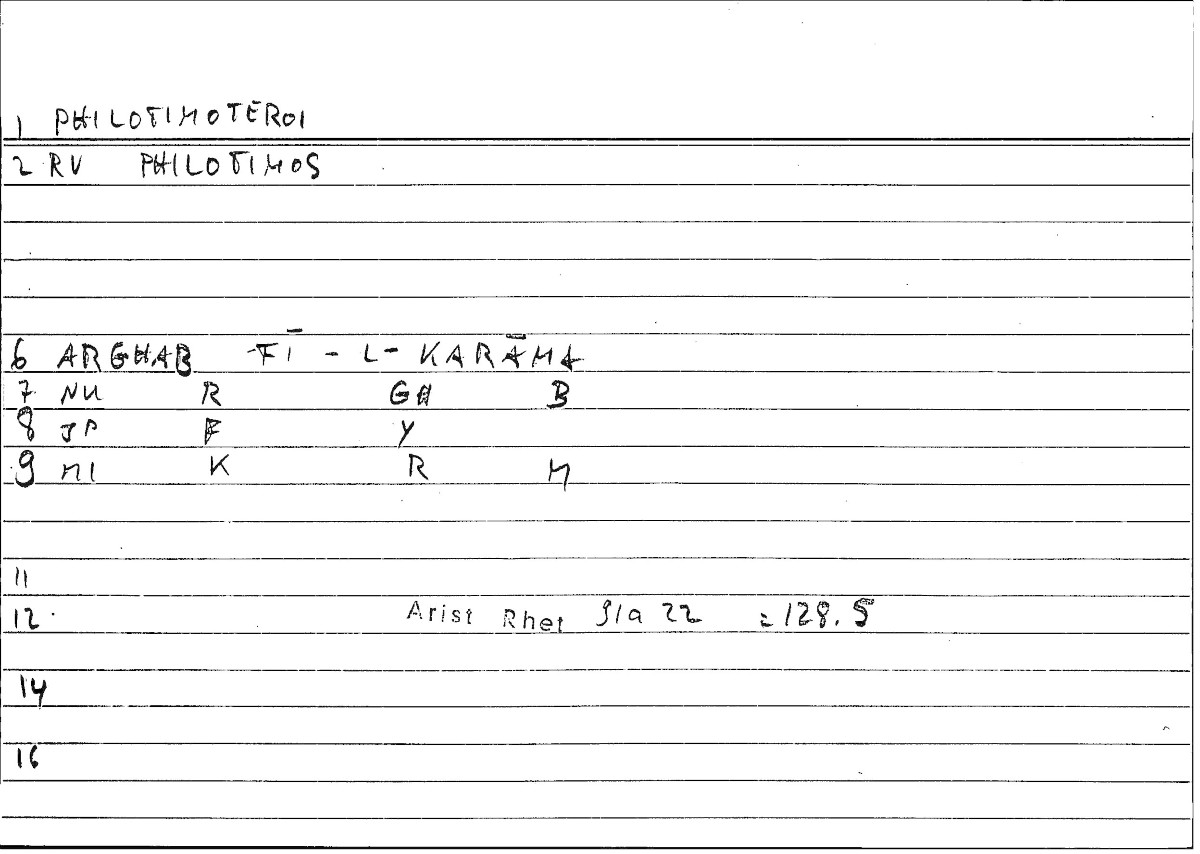 1 PHILOTIMOTEROI
2 RV PHILOTIMOS
6 ARGHAB FĪ - L - KARĀMA
7 NU R GH B
8 JP F Y
9 MI K R M
11
12 Arist Rhet 91a 22 = 128.5
14
16